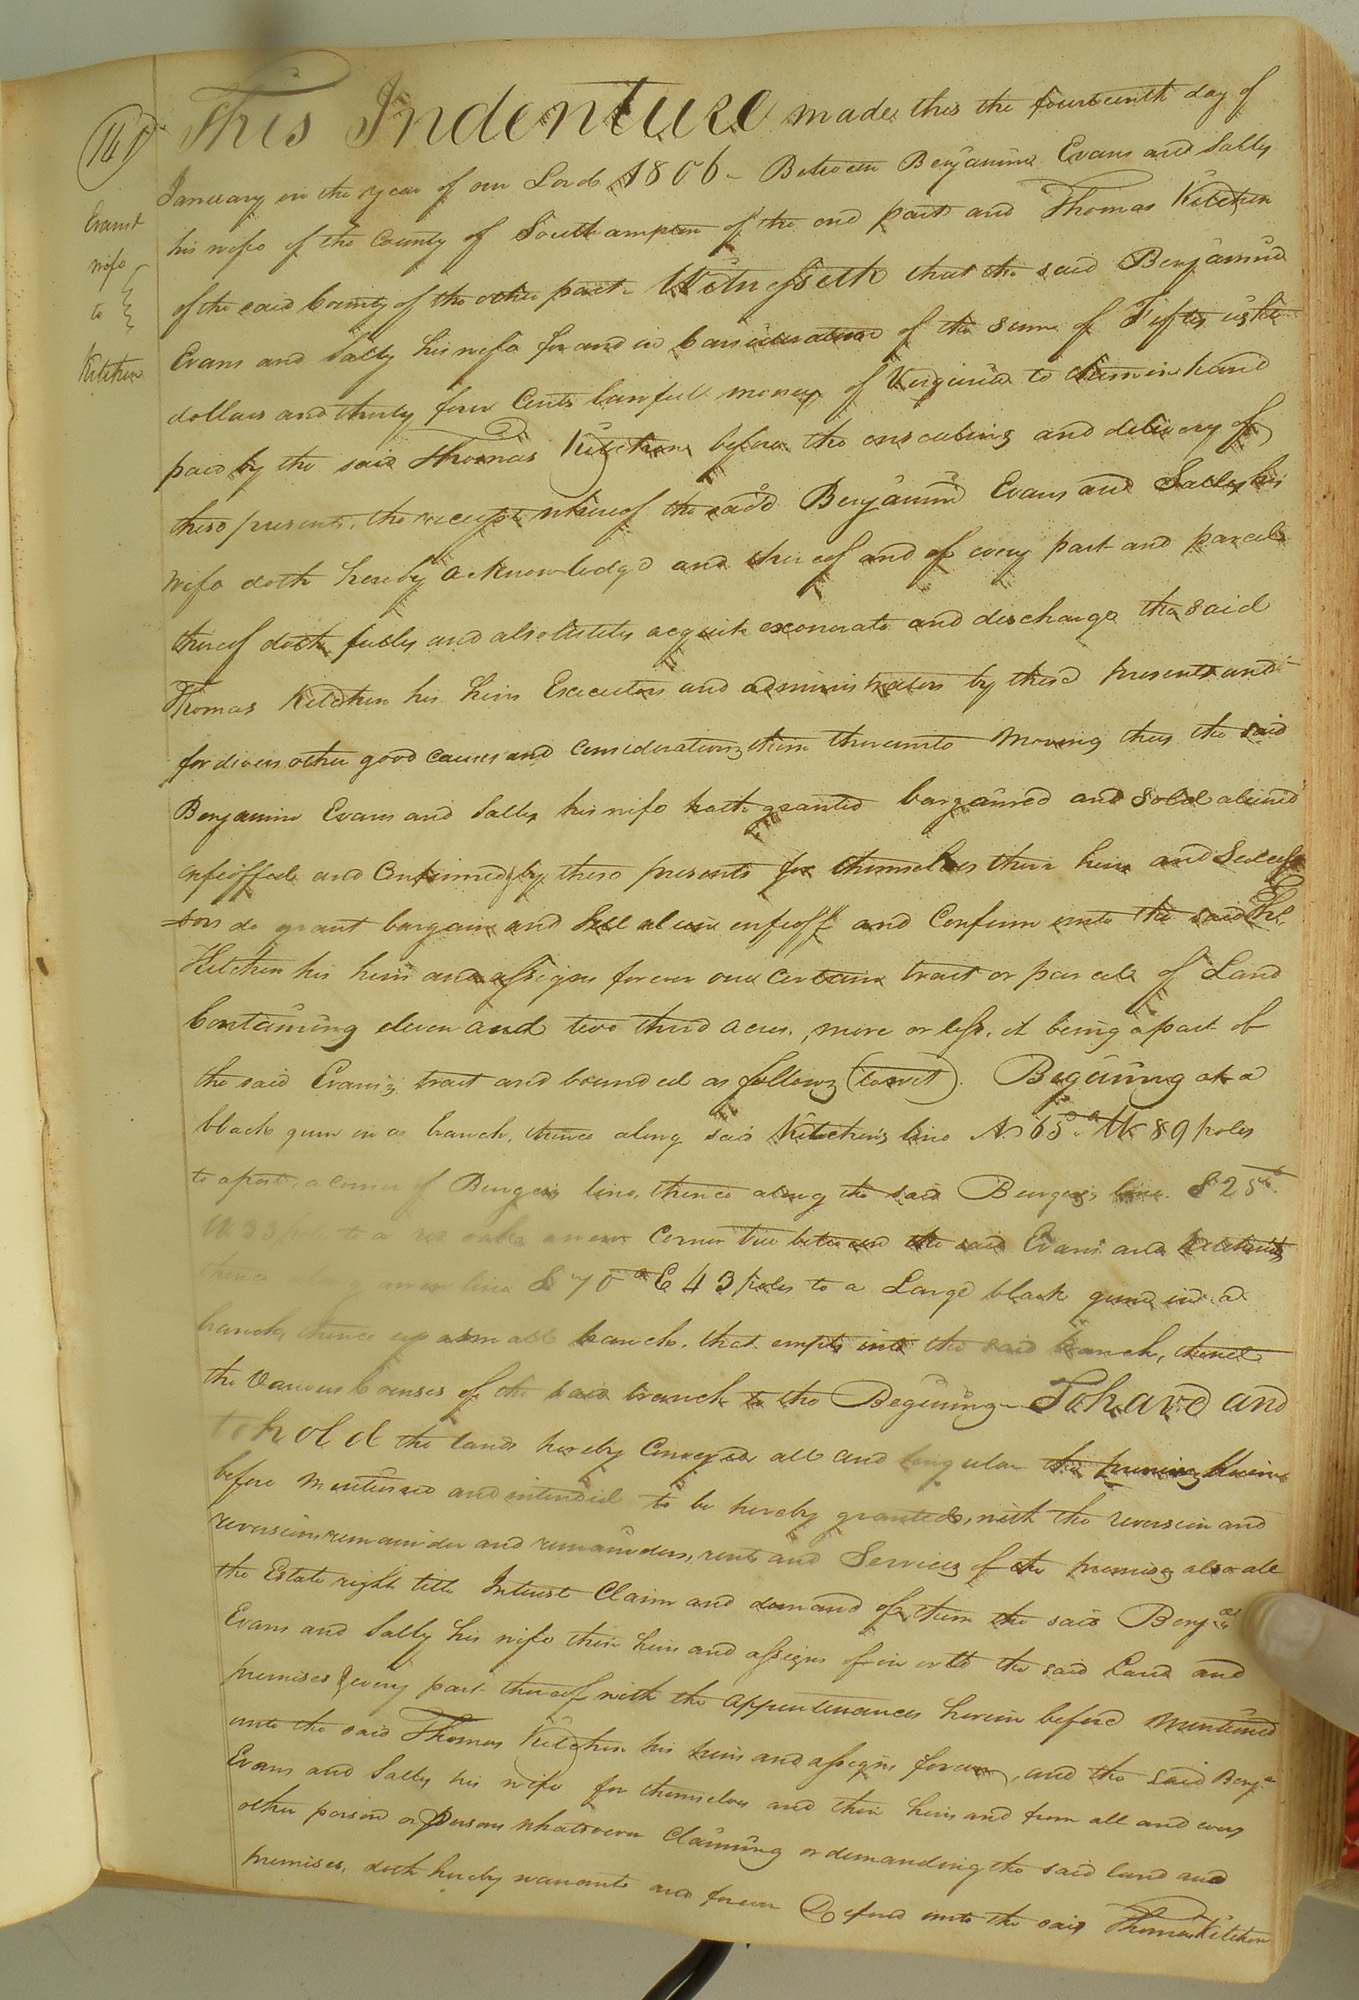 141
Evans &
wife
to
Kitchen
This Indenture made this the fourteenth day of
January in the year of our Lord 1806 - Between Benjamine Evans and Sally
his wife of the County of Southampton of the one part and Thomas Kitchen
of the said County of the other part Witnesseth that the said Benjamine
Evans and Sally his wife for and in Consideration of the sum of Fifty eight
dollars and thirty four Cents lawfull money of Virginia to them in hand
paid by the said Thomas Kitchen before the ensealing and delivery of
these presents, the receipt whereof the said Benjamine Evans and Sally his
wife doth hereby acknowledge and thereof and of every part and parcel
thereof doth fully and absolutely acquit exonerate and discharge the said
Thomas Kitchen his heirs Executors and administrators by these presents and
for divers other good causes and considerations them thereunto moving they the said
Benjamine Evans and Sally his wife hath granted bargained and sold aliened
enfeoffed and Confirmed by these presents for themselves their heirs and Success
=sors do grant bargain and sell alien enfeoff and Confirm unto the said Ths.
Kitchen his heirs and assigns forever one certain tract or parcel of Land
Containing eleven and two third acres, more or less, it being a part of
the said Evans's tract and bounded as follows (towit). Begining at a
black gum in a branch, thence along said Kitchen's line N. 65 d. W 89 poles
to a post, a corner of Burges's line, thence along the said Burges's line. S 25 d.
W 33 poles to a red oake an Corner tree between the said Evans and
thence line S 70 d E 43 poles to a Large black gum in a
branch, thence up a small branch, that empts into the said branch, thence
the Various Courses of the said branch to the Begining - To have and
to hold the lands hereby Conveyed all and singular the premises
before mentioned and intended to be hereby granted, with the reversion and
reversions, remainder and remainders, rents and Services of the premises also all
the Estate right title Interest Claim and demand of them the said Benja.
Evans and Sally his wife their heirs and assigns of in or to the said Land and
premises & every part thereof with the appurtenances herein before mentioned
unto the said Thomas Kitchen his heirs and assigns forever, and the said Benja.
Evans and Sally his wife for themselves and their heirs and from all and every
other person or persons whatsoever Claiming or demanding the said land and
premises, doth hereby warrant and forever Defend unto the said Thomas Kitchen